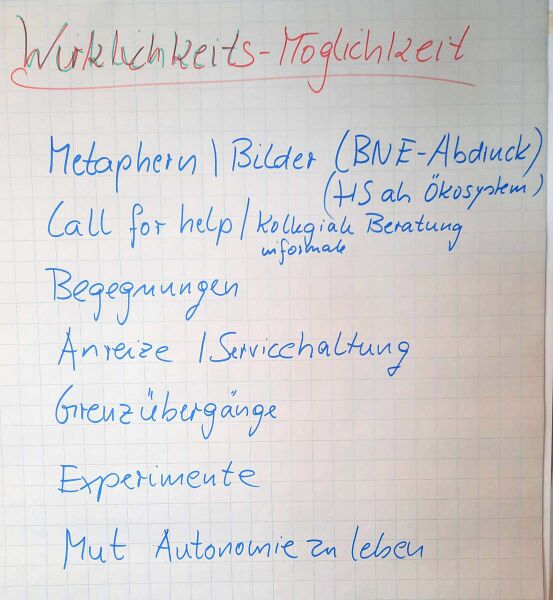 Wirklichkeits-Möglichkeit
Metaphern | Bilder (BNE-Abdruck)
(HS als Ökosystem)
Call for help / Kollegiale Beratung
informale
Begegnungen
Anreize / Servicehaltung
Grenzübergänge
Experimente
Mut Autonomie zu leben